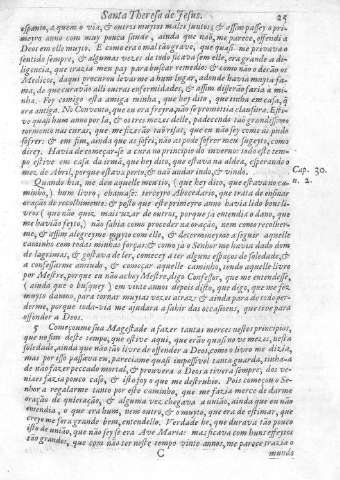 Santa Theresa de Jesus. 25
espanto, a quem o via, & outros muytos males juntos; & assim passey o pri-
meyro anno com muy pouca saude, ainda que naõ, me parece, offendi a
Deos em elle muyto. E como era o mal taõ grave, que quasi me privava o
sentido sempre, & algumas vezes de todo ficava sem elle, era grande a di-
ligencia, que trazia meu pay para buscar remedio: & como não o derão os
Medicos, daqui procurou levarme a hum lugar, adonde havia muyta fa-
ma, de que curavão alli outras enfermidades, & assim disserão faria à mi-
nha. Foy comigo esta amiga minha, que hey dito, que tinha em casa, q̃
era antiga. No Convento, que era freyra, não se promettia clausura. Esti-
ve quasi hum anno por là, & os tres mezes delle, padecendo taõ grandissimo
tormento nas curas, que me fizerão taõ rijas, que eu naõ sey como as pude
soffrer: & em fim, ainda que as sofri, naõ as pode sofrer meu sugeyto, como
direy. Havia de começarse a cura no principio do inverno: todo este tem-
po estive em casa da irmã, que hey dito, que estava na aldea, esperando o
mez de Abril, porque estava perto, & naõ andar indo, & vindo.
Cap. 30.
n. 2.
Quando hia, me deu aquelle meu tio, (que hey dito, que estava no ca-
minho,) hum livro, chamase: terceyro Abecedario, que trata de ensinar
oração de recolhimento: & posto que este primeyro anno havia lido bons li-
vros (que não quiz mais usar de outros, porque ja entendia o dano, que
me havião feyto,) não sabia como proceder na oração, nem como recolherm-
me, & assim alegreyme muyto com elle, & determineyme a seguir aquelle
caminho com todas minhas forças: & como ja o Senhor me havia dado dom
de lagrimas, & gostava de ler, comecey a ter alguns espaços de soledade, &
a confessarme amiude, & começar aquelle caminho, tendo aquelle livro
por Mestre, porque eu não achey Mestre, digo Confessor, que me entendesse,
(ainda que o busquey) em vinte annos depois disto, que digo, que me fez
muyto danno, para tornar muytas vezes atraz: & ainda para de todo per-
derme, porque toda-via me ajudara a sahir das occasioens, que tive para
offender a Deos.
5 Começoume sua Magestade a fazer tantas merces nestes principios,
que no fim deste tempo, que estive aqui, que eraõ quasi nove mezes, nesta
soledade, ainda que não tão livre de offender a Deos, como o livro me dizia,
mas por isso passava eu, pareciame quasi impossivel tanta guarda, tinha-a
de não fazer peccado mortal, & prouvera a Deos a tivera sempre, dos ve-
niaes fazia pouco caso, & isto foy o que me destruhio. Pois começou o Se-
nhor a regalarme tanto por este caminho, que me fazia merce de darme
oração de quietação, & alguma vez chegava a união, ainda que eu não
entendia, o que era hum, nem outro, & o muyto, que era de estimar, que
creyo me fora grande bem, entendello. Verdade he, que durava tão pouco
isto de união, que não sey se era Ave Maria: mas ficava com huns effeytos
tão grandes, que com não ter neste tempo vinte annos, me parece trazia o
C mundo